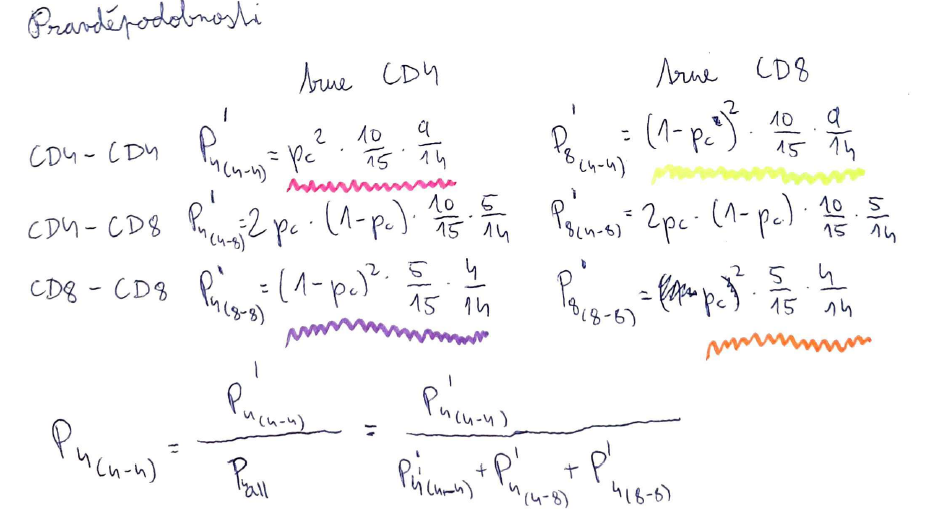 Pravděpodobnosti
true CD4 true CD8
CD4-CD4 P'4(4-4) = pc² · 10/15 · 9/14 P'8(4-4) = (1-pc)² · 10/15 · 9/14
CD4-CD8 P'4(4-8) = 2pc · (1-pc) · 10/15 · 5/14 P'8(4-8) = 2pc · (1-pc) · 10/15 · 5/14
CD8-CD8 P'4(8-8) = (1-pc)² · 5/15 · 4/14 P'8(8-8) = pc² · 5/15 · 4/14
P4(4-4) = P'4(4-4) / P4all = P'4(4-4) / P'4(4-4) + P'4(4-8) + P'4(8-8)